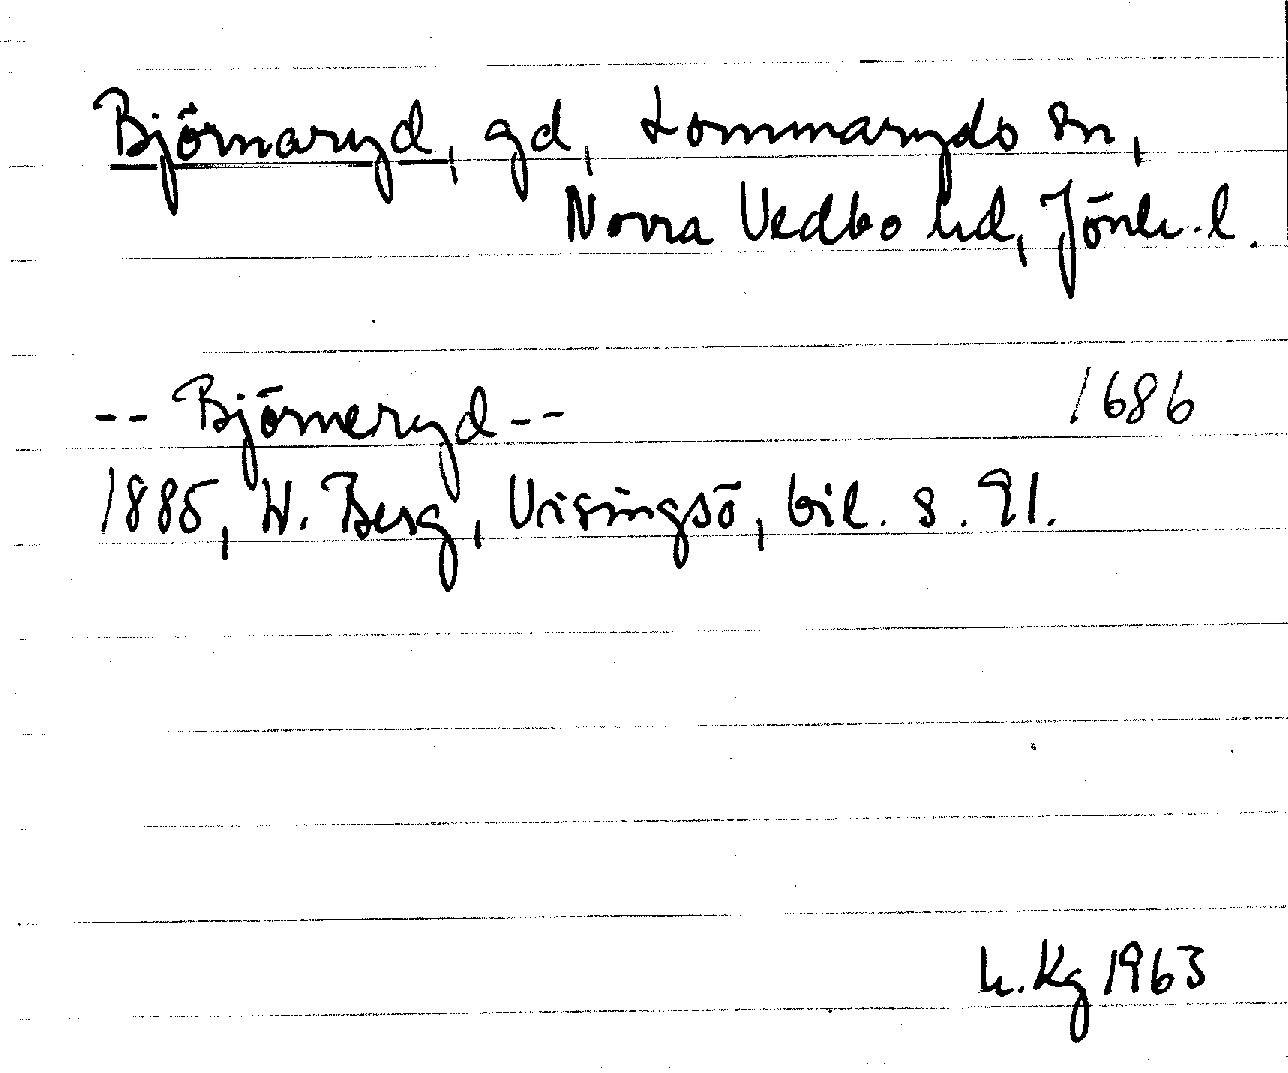 Björnaryd, gd, Lommaryds sn,
Norra Vedbo hd, Jönk. l.
-- Björneryd -- 1686
1885, W. Berg, Visingsö, bil. s. 91.
h. Kg 1963